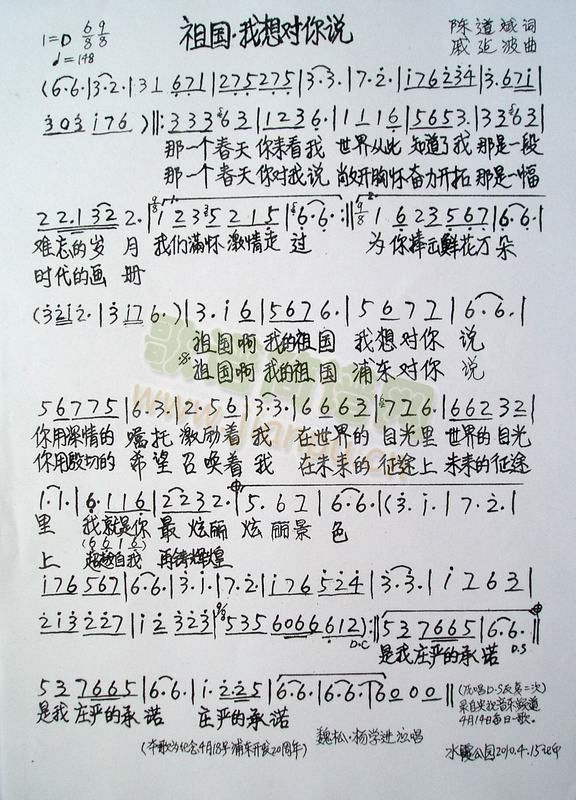 祖国·我想对你说
1=D 6/8 9/8
♩=148
陈道斌词
戚建波曲
(6·6·|3·2·|31 671|275275|3·3·|7·2·|i76234|3·67i|
303 i76 )‖:33363|1236·|1116|5653·|33363|
那一个春天你来看我 世界从此 知道了我 那是一段
那一个春天你对我说 敞开胸怀奋力开拓 那是一幅
22·132 2·|1235215|6·6·:‖1623567|6·6·|
难忘的岁月 我们满怀激情走过 为你捧出鲜花万朵
时代的画册
(3212·|3i76·)|3·i6|5676·|5677|6·6·|
祖国啊 我的祖国 我想对你 说
祖国啊 我的祖国 浦东对你 说
56775|6·3·|2·56|3·3·|66663|7726·|66232|
你用深情的 嘱托 激励着 我 在世界的 目光里 世界的目光
你用殷切的 希望 召唤着 我 在未来的 征途上 未来的征途
1·1·|6·116|2232·|5·67|6·6·|(3·i·|7·2·|
里 我就是你 最炫丽 炫丽景色
(6616)
上 超越自我 再铸辉煌
i76567|6·6·|3·i·|7·2·|i76524|3·3·|i763|
213227|i2323|535606 6612):‖537665|6·6·‖
D.C D.S
是我庄严的承诺
537665|6·6·|i·225|6·6·|6·6·|6000‖
(反唱D.S反复二次)
是我庄严的承诺 庄严的承诺
4月14日每日一歌。
(本歌为纪念4月18号浦东开发20周年)
魏松·杨学进演唱
水霞公园2010.4.15